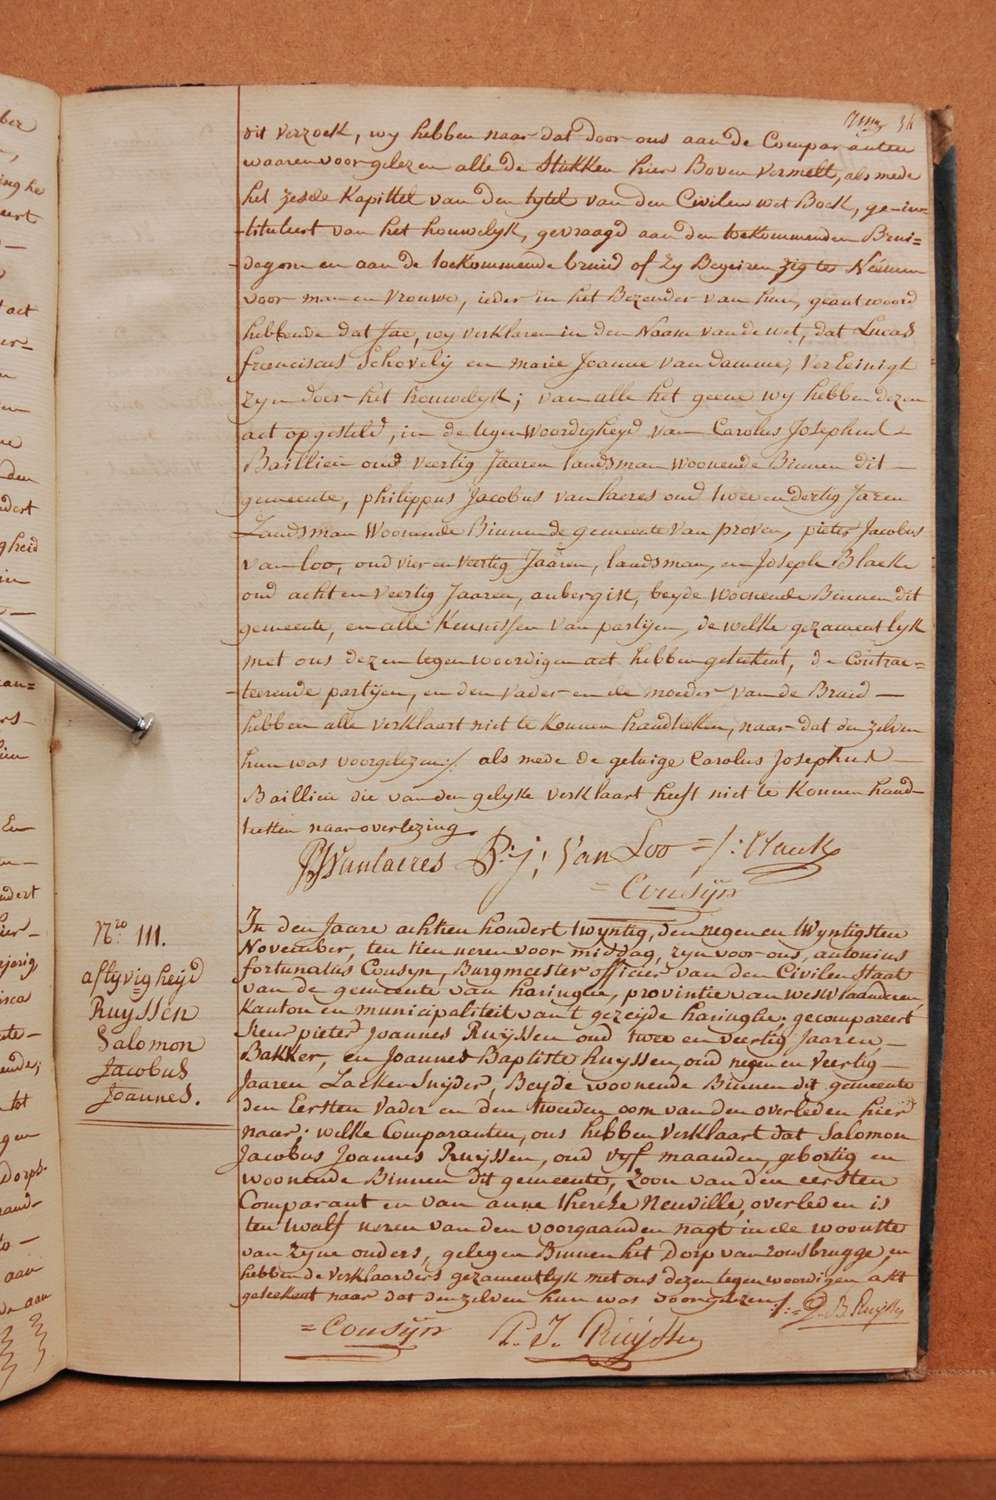 36
dit verzoek, wy hebben naar dat door ons aan de Comparanten
waaren voorgelezen alle de Stukken hier Boven vermelt, als mede
het zesde Kapittel van den tytel van den Civilen wet Boek, ge-in-
-tituleert van het houwelyk, gevraagd aan den toekommenden Brui=
-degom en aan de toekommende bruid of zy Begeiren zig te Neémen
voor man en vrouwe, ieder in het Bezonder van hun, geantwoord
hebbende dat Jae, wy verklaren in den Naam van de wet, dat Lucas
franciscus Schovelij en marie Joanne van damme, ver Einigt
zyn door het houwelyk; van alle het geene wy hebben dezen
act opgesteld, in de tegenwoordigheyd van Carolus Josephus
Baillieu oud veertig Jaaren landsman woonende Binnen dit —
gemeente, philippus Jacobus van laeres oud twee en dertig Jaren
Landsman Woonende Binnen de gemeente van proven, pieter Jacobus
van loo, oud vier en veertig Jaaren, landsman, en Joseph Blaeke
oud acht en veertig Jaaren, aubergist, beyde woonende Binnen dit
gemeente, en alle Kennissen van partijen, de welke gezamentlyk
met ons dezen tegenwoordigen act hebben geteekent, de Contrac=
-teerende partijen, en den vader en de moeder van de Bruid —
hebben alle verklaart niet te Konnen handteeken, naar dat den zelven
hun was voorgelezen/. als mede de getuige Carolus Josephus —
Baillieu die van den gelyke verklaart heeft niet te Konnen hand-
teeken naar overlezing.
PJ Vanlaeres P:j: Van Loo =/: Black
= Cousijn
Nro 111.
aflyvigheyd
Ruyssen
Salomon
Jacobus
Joannes.
In den Jaare achtien hondert twyntig, den negen en twyntigsten
November, ten tien ueren voor middag, zyn voor ons, antonius
fortunatus Cousyn, Burgmeester officier van den Civilen Staat
van de gemeente van haringhe, provintie van westvlaanderen,
Kanton en municipaliteit van 't gezeijde haringhe, gecompareert
sieur pieter Joannes Ruyssen oud twee en veertig Jaaren, —
Bakker, en Joannes Baptiste Ruyssen, oud negen en veertig —
Jaaren Laeken Snijder, Beyde woonende Binnen dit gemeente
den Eersten vader en den tweeden oom van den overleden hier
naer; welke Comparanten, ons hebben verklaart dat Salomon
Jacobus Joannes Ruyssen, oud vyf maanden gebortig en
woonende Binnen dit gemeente, Zoon van den eersten
Comparant en van anne therese Neuville, overleden is
ten twalf ueren van den voorgaanden nagt in de woonste
van zyne ouders, gelegen Binnen het Dorp van rousbrugge, en
hebben de verklaarders gezamentlyk met ons dezen tegenwoordigen akt
geteekent naar dat den zelven hun was voorgelezen/:= J. B. Ruyssen
= Cousijn P. J. Ruyssen